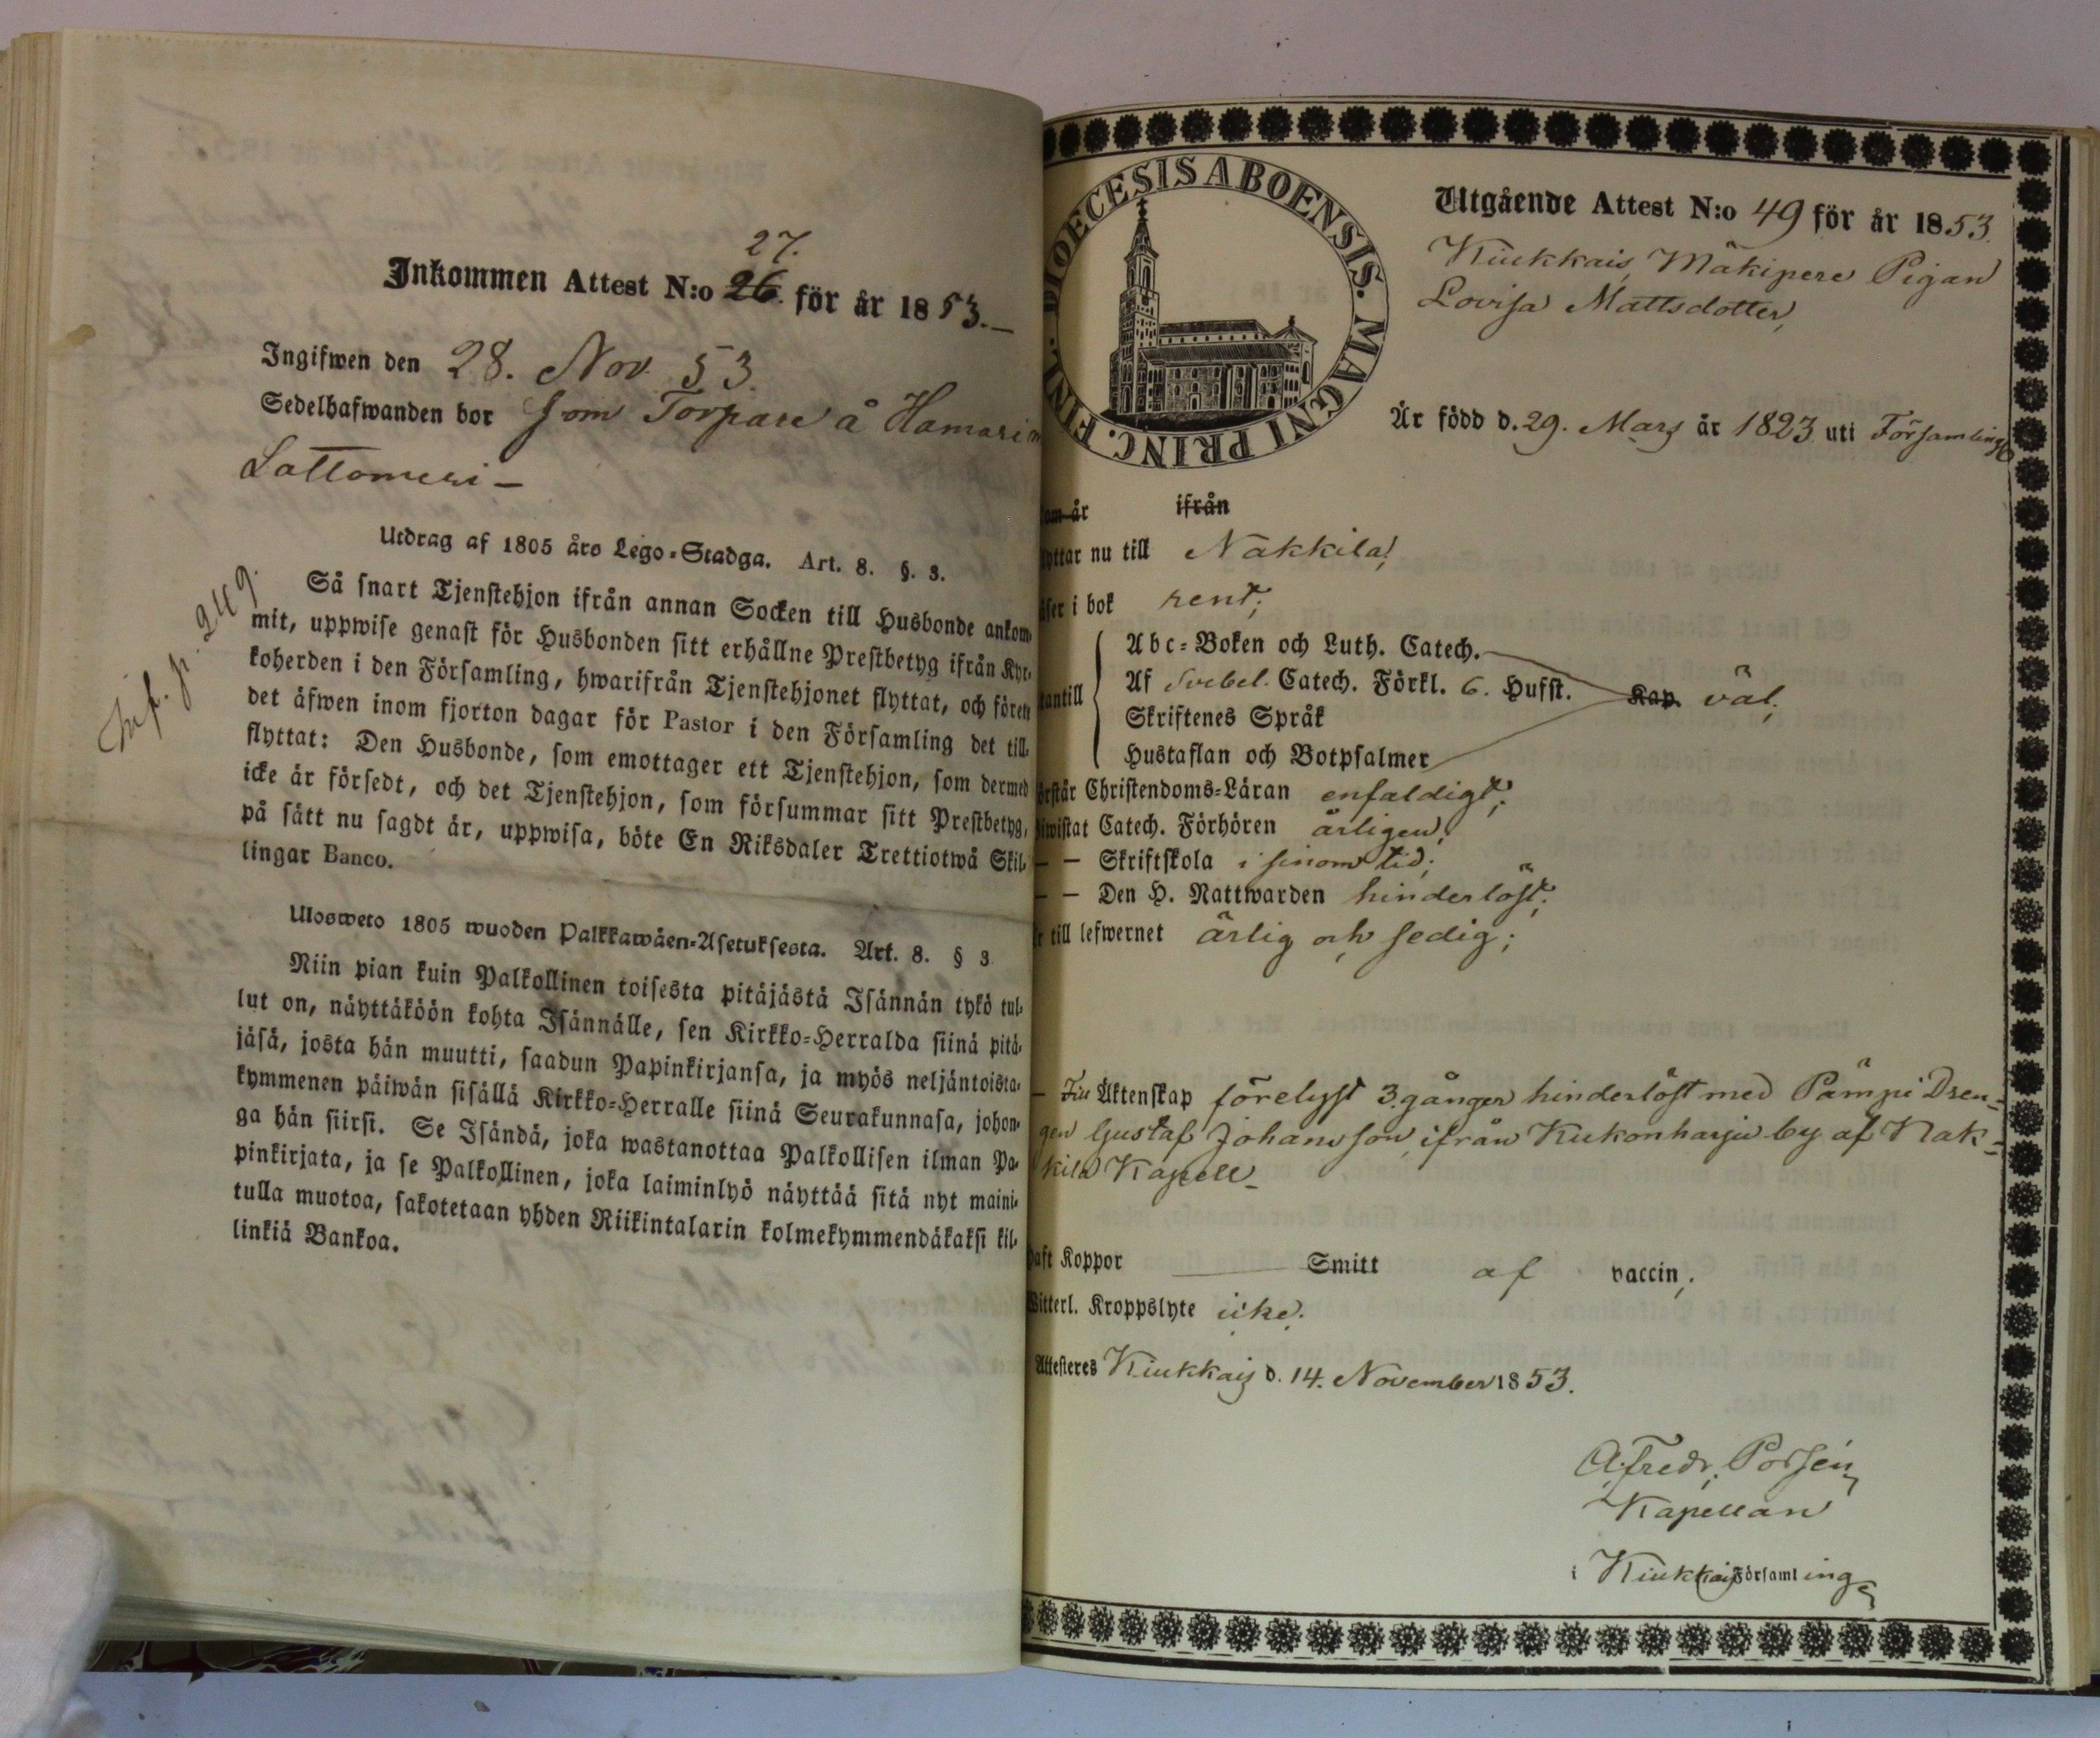 27.
Inkommen Attest N:o 26. för år 1853.—
Ingifwen den 28. Nov 53.
Sedelhafwanden bor som Torpare å Hamari
Lattomeri —
Utdrag af 1805 års Lego-Stadga. Art. 8. §. 3.
Så snart Tjenstehjon ifrån annan Socken till Husbonde ankom-
mit, uppwise genast för Husbonden sitt erhållne Prestbetyg ifrån Kyr-
koherden i den Församling, hwarifrån Tjenstehjonet flyttat, och förete
det äfwen inom fjorton dagar för Pastor i den Församling det till-
flyttat: Den Husbonde, som emottager ett Tjenstehjon, som dermed
icke är försedt, och det Tjenstehjon, som försummar sitt Prestbetyg,
på sätt nu sagdt är, uppwisa, böte En Riksdaler Trettiotwå Skil-
lingar Banco.
Inf. p. 249.
Ulosweto 1805 wuoden Palkkawäen-Asetuksesta. Art. 8. § 3
Niin pian kuin Palkollinen toisesta pitäjästä Isännän tykö tul-
lut on, näyttäköön kohta Isännälle, sen Kirkko-Herralda siinä pitä-
jäsä, josta hän muutti, saadun Papinkirjansa, ja myös neljäntoista-
kymmenen päiwän sisällä Kirkko-Herralle siinä Seurakunnasa, johon-
ga hän siirsi. Se Isändä, joka wastanottaa Palkollisen ilman Pa-
pinkirjata, ja se Palkollinen, joka laiminlyö näyttää sitä nyt maini-
tulla muotoa, sakotetaan yhden Riikintalarin kolmekymmendäkaksi kil-
linkiä Bankoa.
DIOECESIS ABOENSIS. MAGNI PRINC. FINL.
Utgående Attest N:o 49 för år 1853.
Kiukkais Mäkipere Pigan
Lovisa Mattsdotter,
Är född d. 29. Mars år 1823 uti Församling
om är ifrån
yttar nu till Nakkila,
äser i bok rent;
Abc-Boken och Luth. Catech.
antill Af Svebel. Catech. Förkl. 6. Hufst. Kap. väl;
Skriftenes Språk
Hustaflan och Botpsalmer
örstår Christendoms-Läran enfaldigt;
iwistat Catech. Förhören årligen,
— — Skriftskola i sinom tid;
— — Den H. Nattwarden hinderlöst;
r till lefwernet ärlig och sedig;
— Till Äktenskap förelyst 3. gånger hinderlöst med Pämpi Dren-
gen Gustaf Johansson ifrån Kukonharju by af Nak-
kila Kapell —
haft Koppor Smitt af vaccin;
Witterl. Kroppslyte icke.
Attesteres Kiukkais d. 14. November 1853.
A. Fredr. Porsén
Kapellan
i Kiukkais Församling